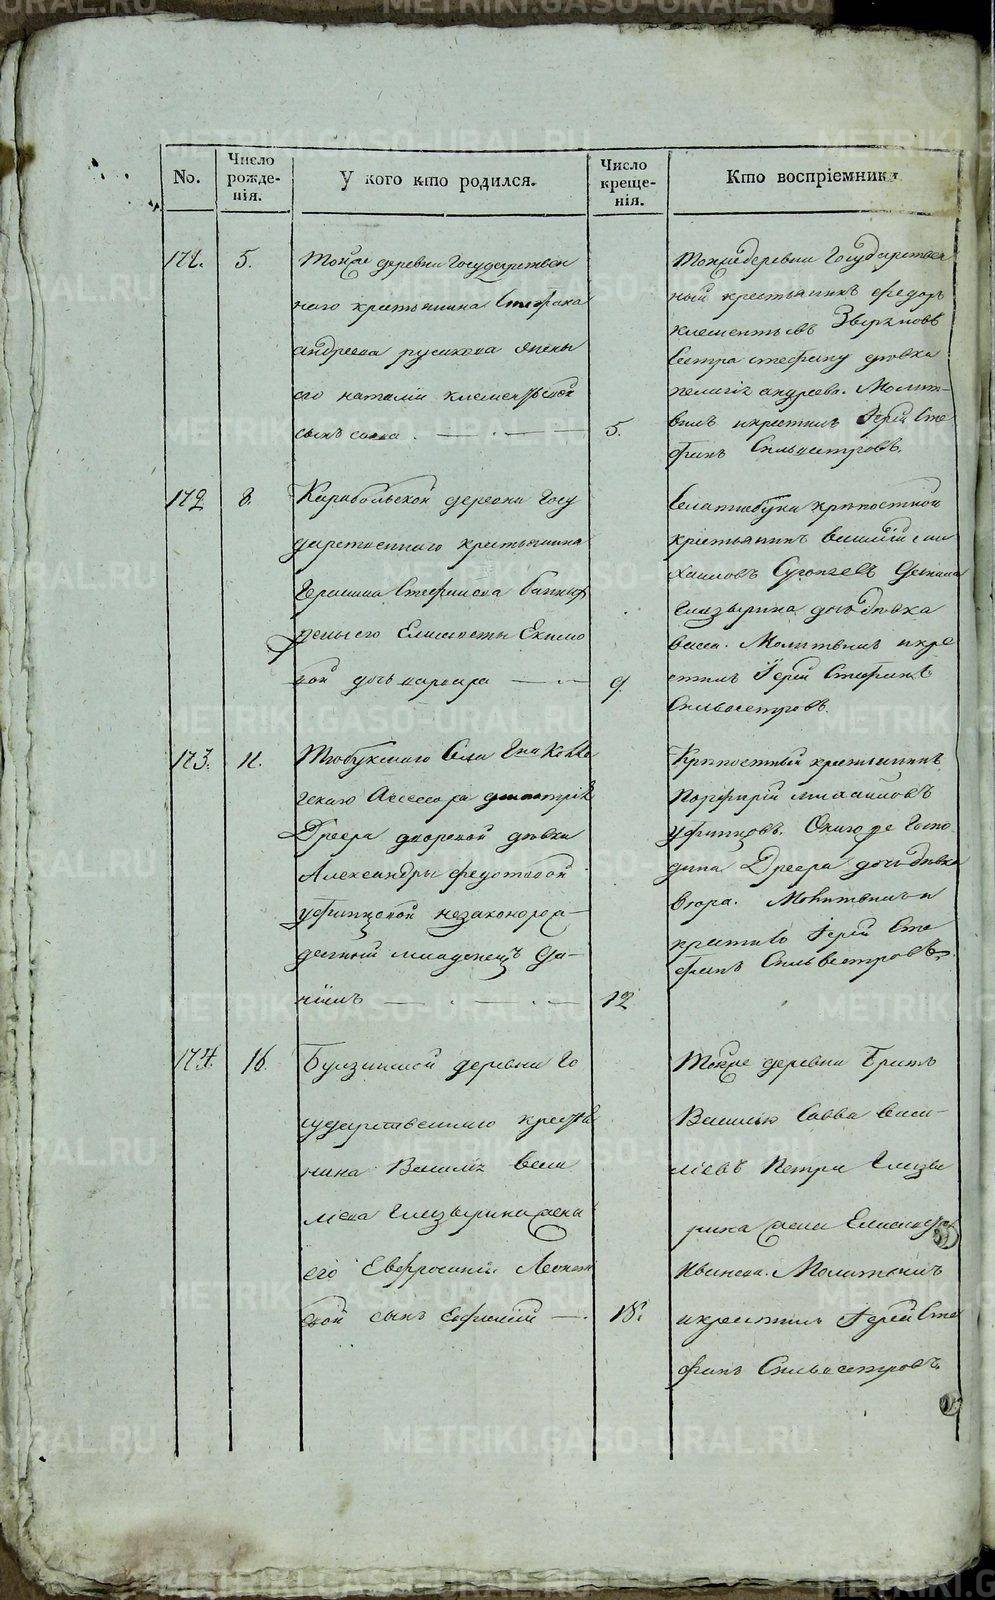 No.
Число рожде-нія.
У кого кто родился.
Число креще-нія.
Кто воспріемники
171.
5.
тойже деревни Государствен
наго крестьянина Стефана
андреева русинова жены
его наталіи клементьевой
сынъ савва.
5.
тойже деревни Государствен
ный крестьянинъ федоръ
клементьевъ Зверевъ
Сестра стефану девка
пелагія андреева. Молит-
вилъ икрестилъ Іерей Сте
фанъ Сильвестровъ.
172
8.
Карабольской деревни Госу
дарственнаго крестьянина
Герасима Стефанова
жены его Елисаветы Екимо
вой дочь варвара
9.
крепостной
крестьянинъ василій ми
хаиловъ
Глазырина дочь девка
васса. Молитвилъ икре
стилъ Іерей Стефанъ
Сильвестровъ.
173.
11.
Тюбукскаго Села
Асессора димитрія
Дреера дворовой девки
Александры федотовой
уфинцовой незаконорож-
денный младенецъ Да-
ніилъ
12
Крепостный крестьянинъ
Порфирій михаиловъ
уфинцовъ. Онаго же Госпо-
дина Дреера дочь девка
Молитвилъ и
крестилъ Іерей Сте
фанъ Сильвестровъ.
174.
16.
Булзинской деревни Го
сударственнаго крестья
нина Василія Васи
льева Глазырина жены
его Евфросиніи Леонть
вой сынъ Евфимій
18.
тойже деревни Братъ
Василью Савва Васи-
льевъ Петра Глазы
рина жена Елисавета
Иванова. Молитвилъ
икрестилъ Іерей Сте
фанъ Сильвестровъ
METRIKI.GASO-URAL.RU